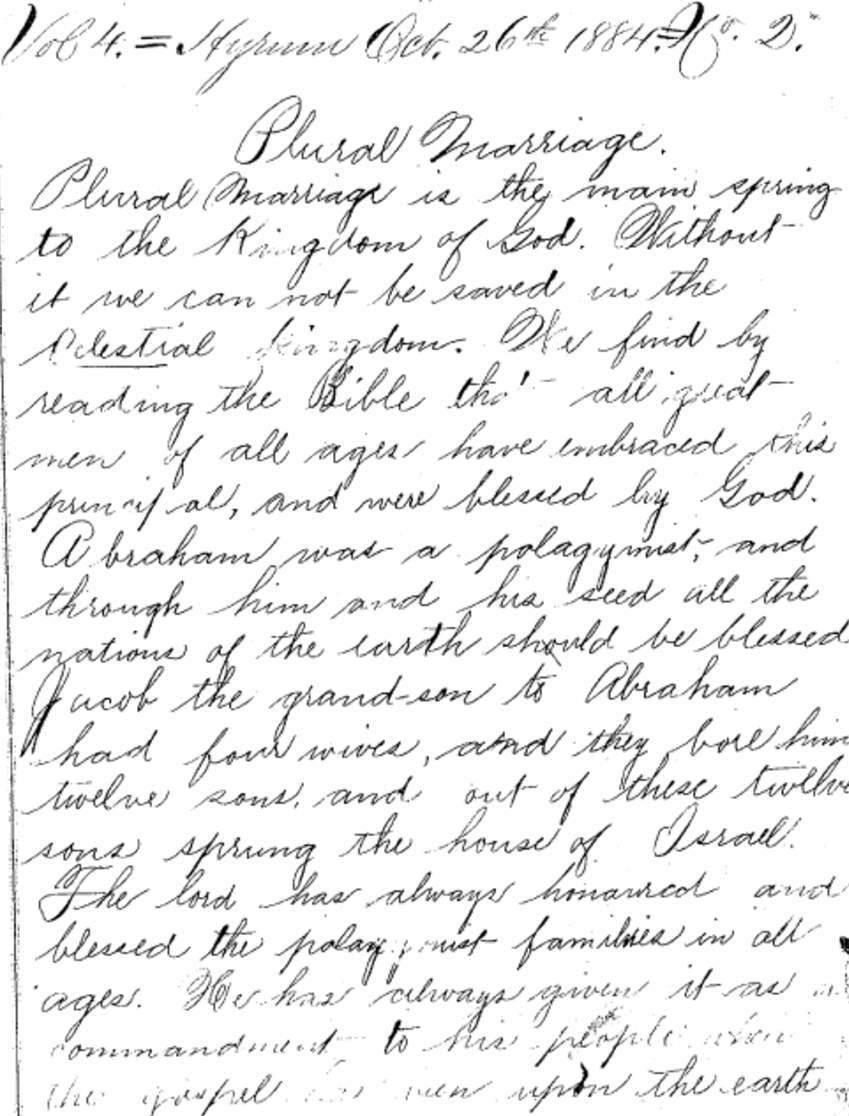 Vol 4. = Hyrum Oct. 26th 1884. = No. 2.
Plural Marriage.
Plural Marriage is the main spring
to the Kingdom of God. Without
it we can not be saved in the
Celestial Kingdom. We find by
reading the Bible that all great
men of all ages have embraced this
principal, and were blessed by God.
Abraham was a polagymist, and
through him and his seed all the
nations of the earth should be blessed
Jacob the grand-son to Abraham
had four wives, and they bore him
twelve sons, and out of these twelve
sons sprung the house of Israel.
The lord has always honoured and
blessed the polagymist families in all
ages. He has always given it as a
commandment to his people when
the gospel has been upon the earth